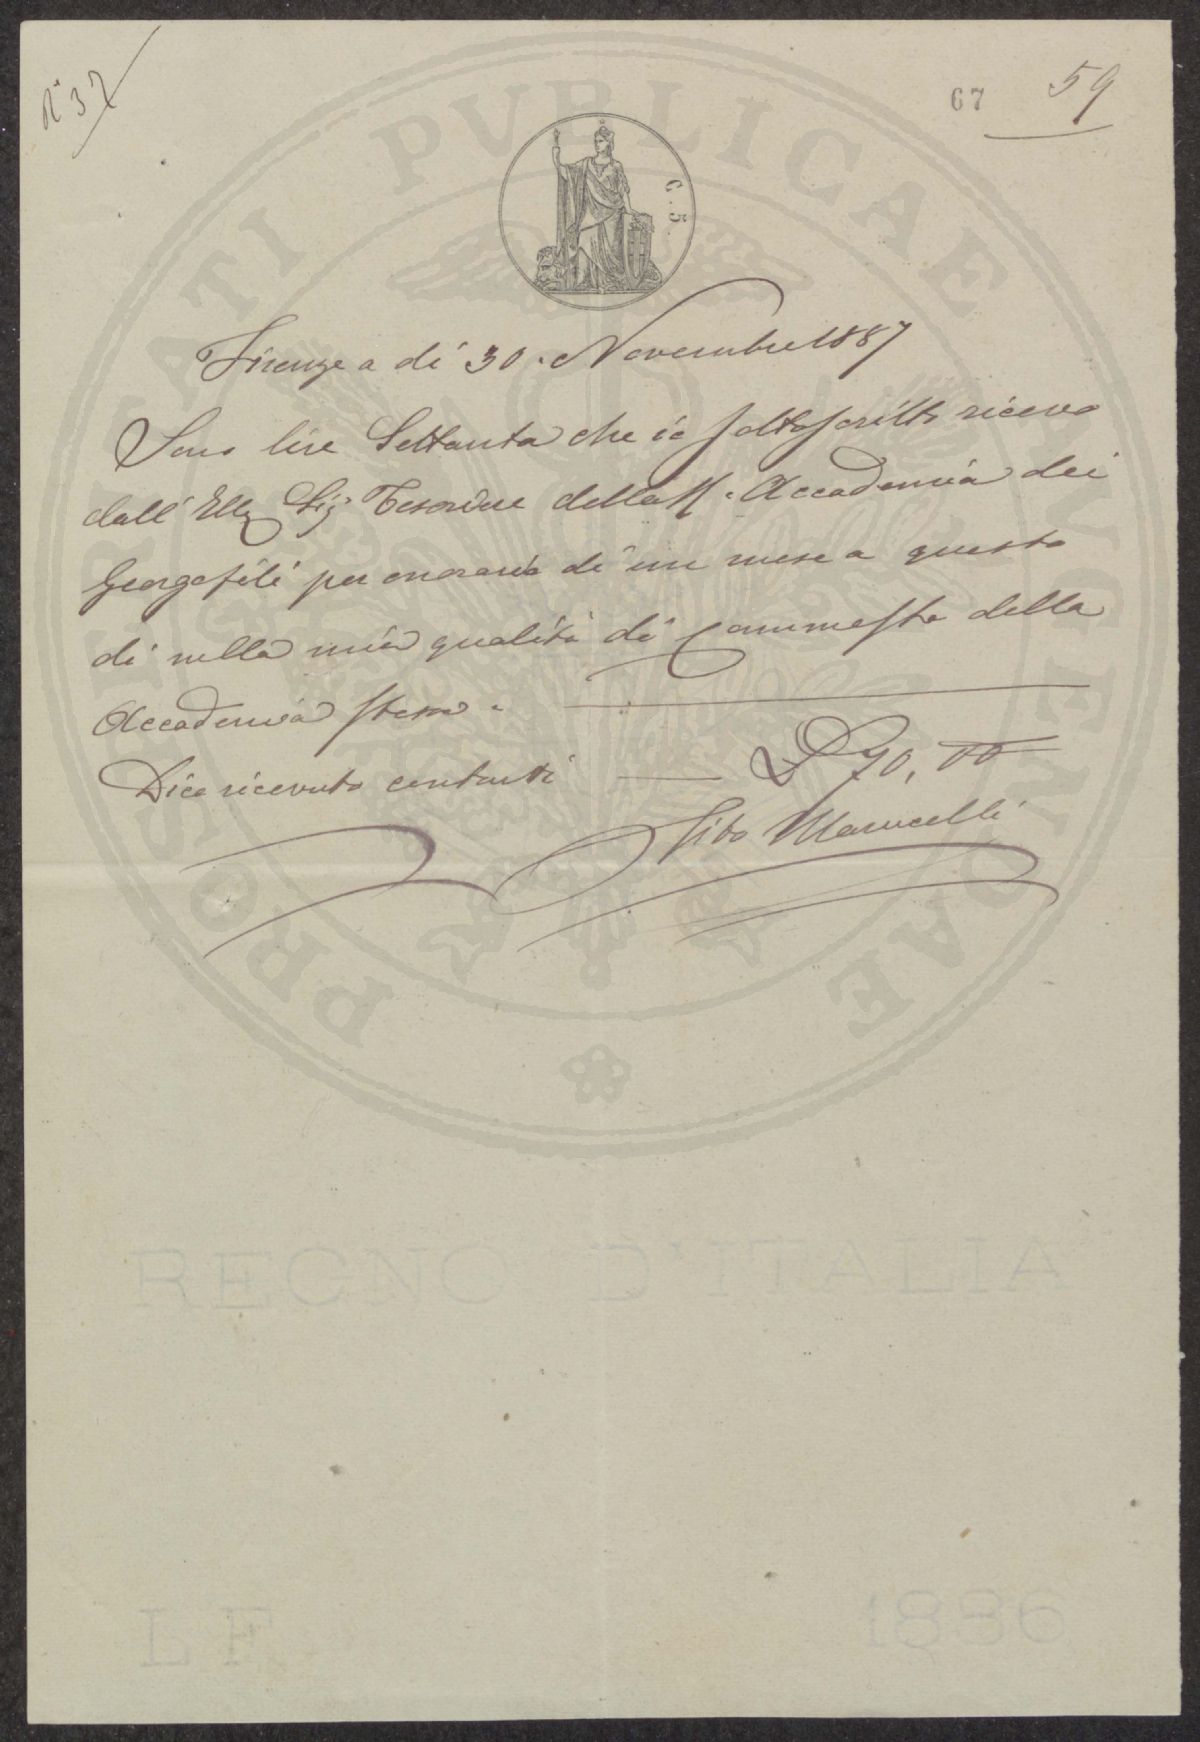 N° 37
67 59
C. 5.
Firenze a dì 30. Novembre 1887
Sono lire Settanta che io sottoscritto ricevo
dall' Ill Sig Tesoriere della R. Accademia dei
Georgofili per onorario di un mese a questo
dì nella mia qualità di Commesso della
Accademia stessa.
Dico ricevuto contanti L 70,00
Tito Marucelli
PROSPERITATI PVBLICAE AVGENDAE
REGNO D'ITALIA
L F 1886